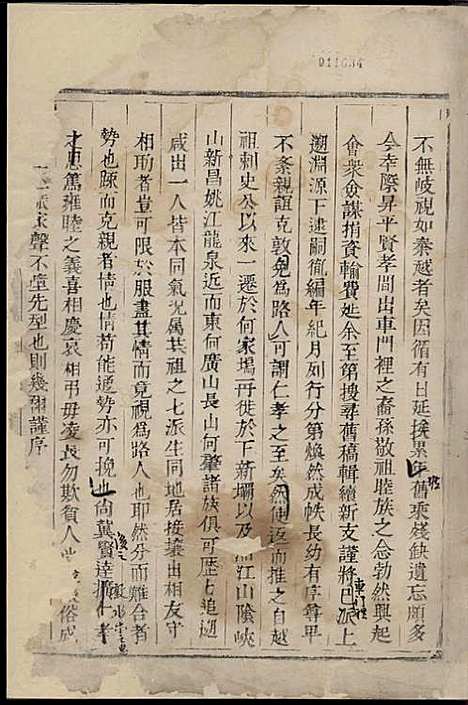 011634
不無岐視如秦越者矣因循有日延挨累年舊乘殘缺遺忘頗多
今幸際昇平賢孝間出車門裡之裔孫敬祖睦族之念勃然興起
會衆僉謀捐資輸費延余至第搜尋舊稿輯續新支謹將已派上
遡淵源下逮嗣胤編年紀月列行分第煥然成帙長幼有序尊卑
不紊親誼克敦免爲路人可謂仁孝之至矣然使返而推之自越
祖刺史公以來一遷於何家塢再徙於下新壩以及江山陰峽
山新昌姚江龍泉近而東何廣山長山何肇諸族俱可歷占追遡
咸出一人皆本同氣况属其祖之七派生同地居接壤出相友守
相助者豈可限於服盡其情而竟視爲路人也耶然分而難合者
勢也踈而克親者情也情苟能通勢亦可挽也尚冀賢達擴仁孝
之思篤雍睦之義喜相慶哀相弔毋凌長勿欺貧人俗成
家聲不墜先型也則幾謹序